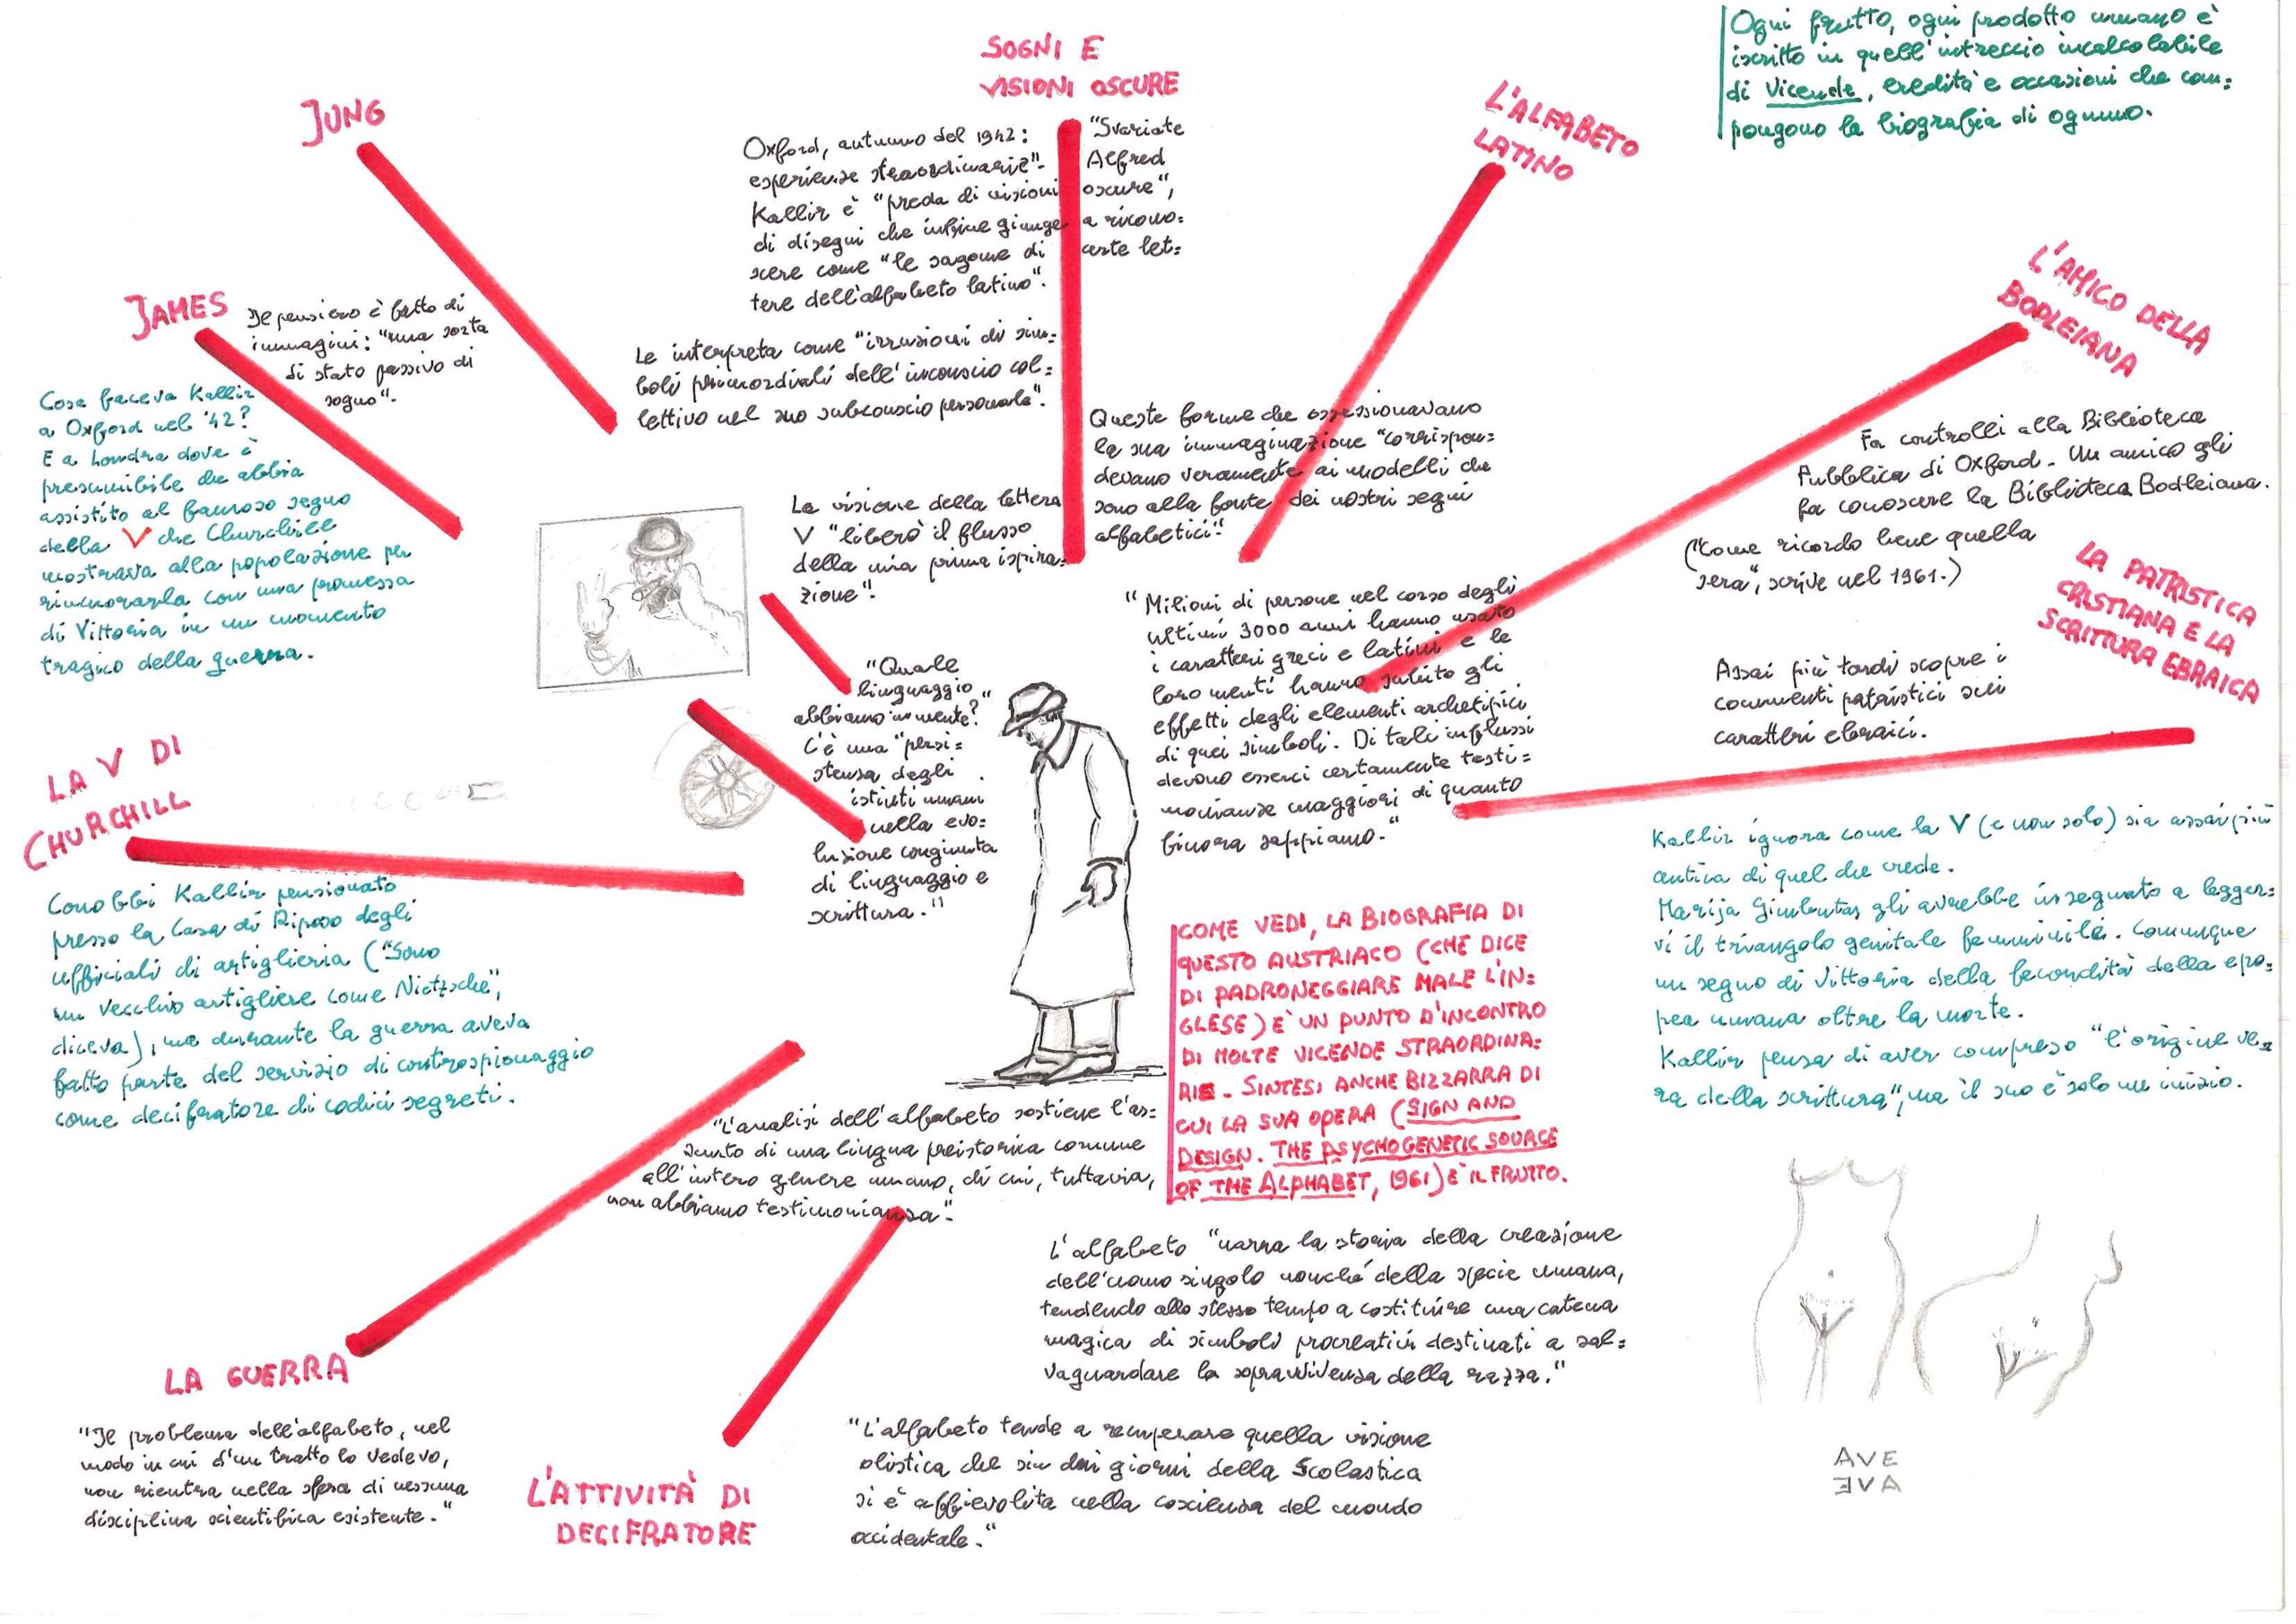 Ogni frutto, ogni prodotto umano è
iscritto in quell'intreccio incalcolabile
di Vicende, eredità e occasioni che com=
pongono la biografia di ognuno.
SOGNI E
VISIONI OSCURE
Oxford, autunno del 1942: "Svariate
esperienze straordinarie". Alfred
Kallir è "preda di visioni oscure",
di disegni che infine giunge a ricono=
scere come "le sagome di certe let=
tere dell'alfabeto latino".
Le interpreta come "irruzioni di sim=
boli primordiali dell'inconscio col=
lettivo nel suo subconscio personale".
JUNG
JAMES
Il pensiero è fatto di
immagini: "una sorta
di stato passivo di
sogno".
Cosa faceva Kallir
a Oxford nel '42?
E a Londra dove è
presumibile che abbia
assistito al famoso segno
della V che Churchill
mostrava alla popolazione per
rincuorarla con una promessa
di Vittoria in un momento
tragico della guerra.
L'ALFABETO
LATINO
Queste forme che ossessionavano
la sua immaginazione "corrispon=
devano veramente ai modelli che
sono alla fonte dei nostri segni
alfabetici".
La visione della lettera
V "liberò il flusso
della mia prima ispira=
zione".
L'AMICO DELLA
BODLEIANA
Fa controlli alla Biblioteca
Pubblica di Oxford. Un amico gli
fa conoscere la Biblioteca Bodleiana.
("Come ricordo bene quella
sera", scrive nel 1961.)
LA PATRISTICA
CRISTIANA E LA
SCRITTURA EBRAICA
Assai più tardi scopre i
commenti patristici sui
caratteri ebraici.
"Milioni di persone nel corso degli
ultimi 3000 anni hanno usato
i caratteri greci e latini e le
loro menti hanno subìto gli
effetti degli elementi archetipici
di quei simboli. Di tali influssi
devono esserci certamente testi=
monianze maggiori di quanto
finora sappiamo."
"Quale
linguaggio
abbiamo in mente?"
C'è una "persi=
stenza degli
istinti umani
nella evo=
luzione congiunta
di linguaggio e
scrittura."
LA V DI
CHURCHILL
Conobbi Kallir pensionato
presso la Casa di Riposo degli
ufficiali di artiglieria ("Sono
un vecchio artigliere come Nietzsche",
diceva), ma durante la guerra aveva
fatto parte del servizio di controspionaggio
come decifratore di codici segreti.
Kallir ignora come la V (e non solo) sia assai più
antica di quel che crede.
Marija Gimbutas gli avrebbe insegnato a legger=
vi il triangolo genitale femminile. Comunque
un segno di Vittoria della fecondità della epo=
pea umana oltre la morte.
Kallir pensa di aver compreso "l'origine ve=
ra della scrittura", ma il suo è solo un inizio.
COME VEDI, LA BIOGRAFIA DI
QUESTO AUSTRIACO (CHE DICE
DI PADRONEGGIARE MALE L'IN=
GLESE) E' UN PUNTO D'INCONTRO
DI MOLTE VICENDE STRAORDINA=
RIE. SINTESI ANCHE BIZZARRA DI
CUI LA SUA OPERA (SIGN AND
DESIGN. THE PSYCHOGENETIC SOURCE
OF THE ALPHABET, 1961) E' IL FRUTTO.
"L'analisi dell'alfabeto sostiene l'as=
sunto di una lingua preistorica comune
all'intero genere umano, di cui, tuttavia,
non abbiamo testimonianza".
L'alfabeto "narra la storia della creazione
dell'uomo singolo nonché della specie umana,
tendendo allo stesso tempo a costituire una catena
magica di simboli procreativi destinati a sal=
vaguardare la sopravvivenza della razza."
"L'alfabeto tende a recuperare quella visione
olistica che sin dai giorni della Scolastica
si è affievolita nella coscienza del mondo
occidentale."
LA GUERRA
"Il problema dell'alfabeto, nel
modo in cui d'un tratto lo vedevo,
non rientra nella sfera di nessuna
disciplina scientifica esistente."
L'ATTIVITÀ DI
DECIFRATORE
AVE
EVA